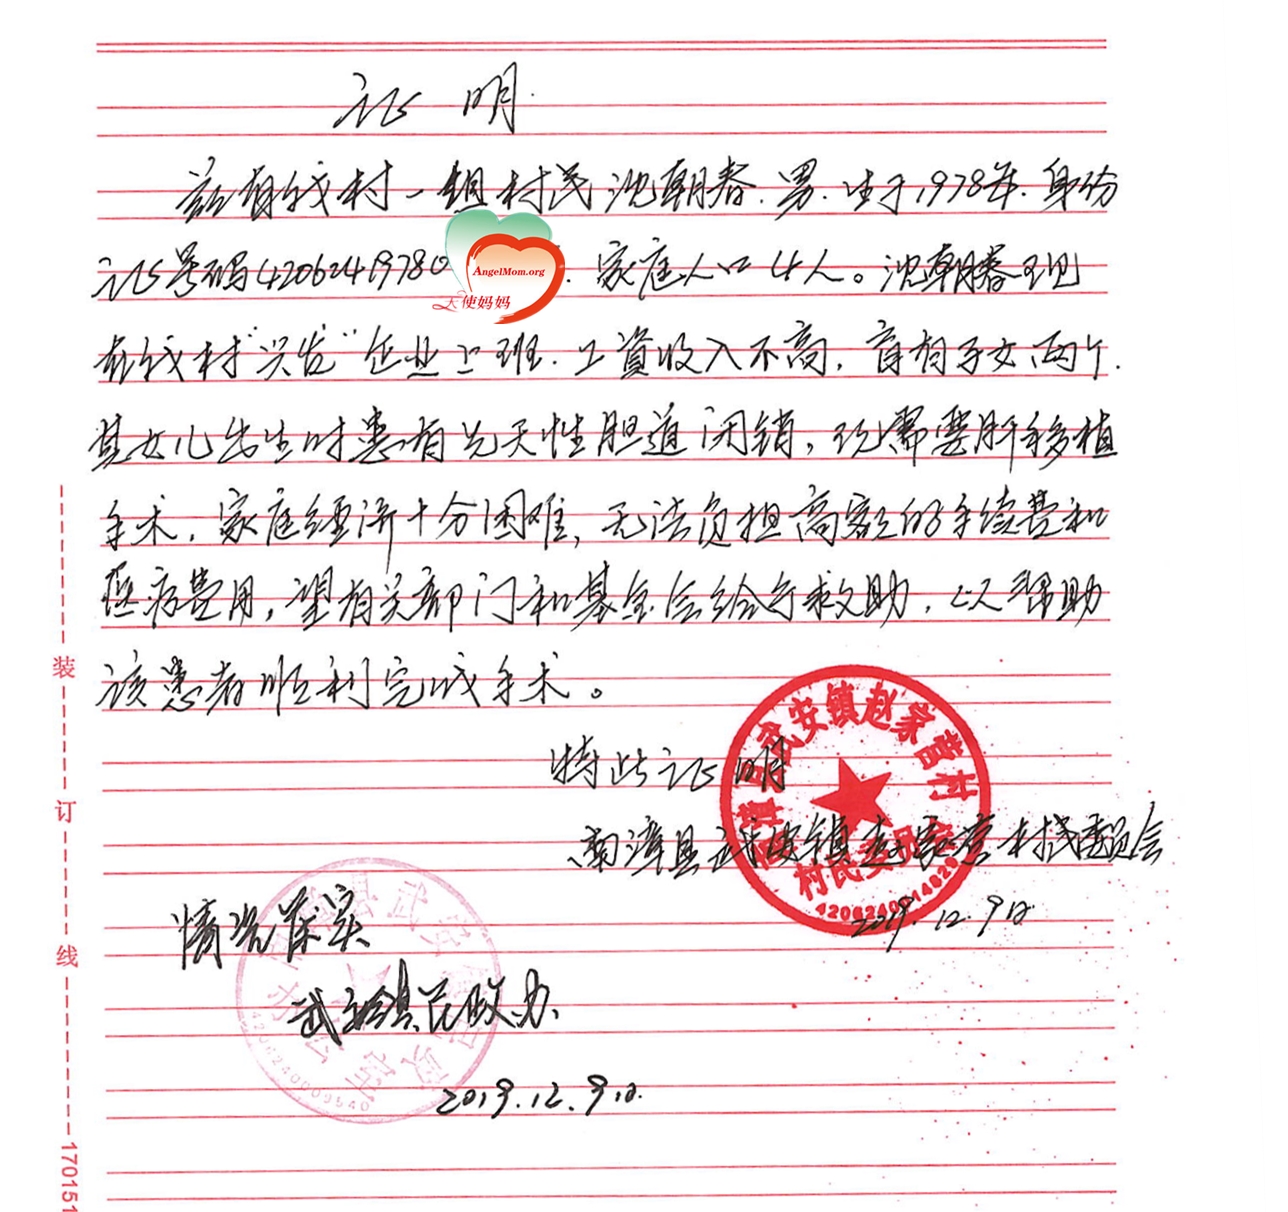 证明
兹有我村一组村民沈朝春.男.生于1978年.身份
证号码42062419780
AngelMom.org
天使妈妈
家庭人口4人。沈朝春现
在我村"兴发"企业上班.工资收入不高,育有子女两个.
其女儿出生时患有先天性胆道闭锁,现需要肝移植
手术.家庭经济十分困难,无法负担高额的手续费和
医病费用,望有关部门和基金会给予救助.以帮助
该患者顺利完成手术。
特此证明
南漳县武安镇赵家营村民委员会
2019.12.9日
南漳县武安镇赵家营村
村民委员会
情况属实
武安镇民政办
2019.12.9日.
装
订
线
170151